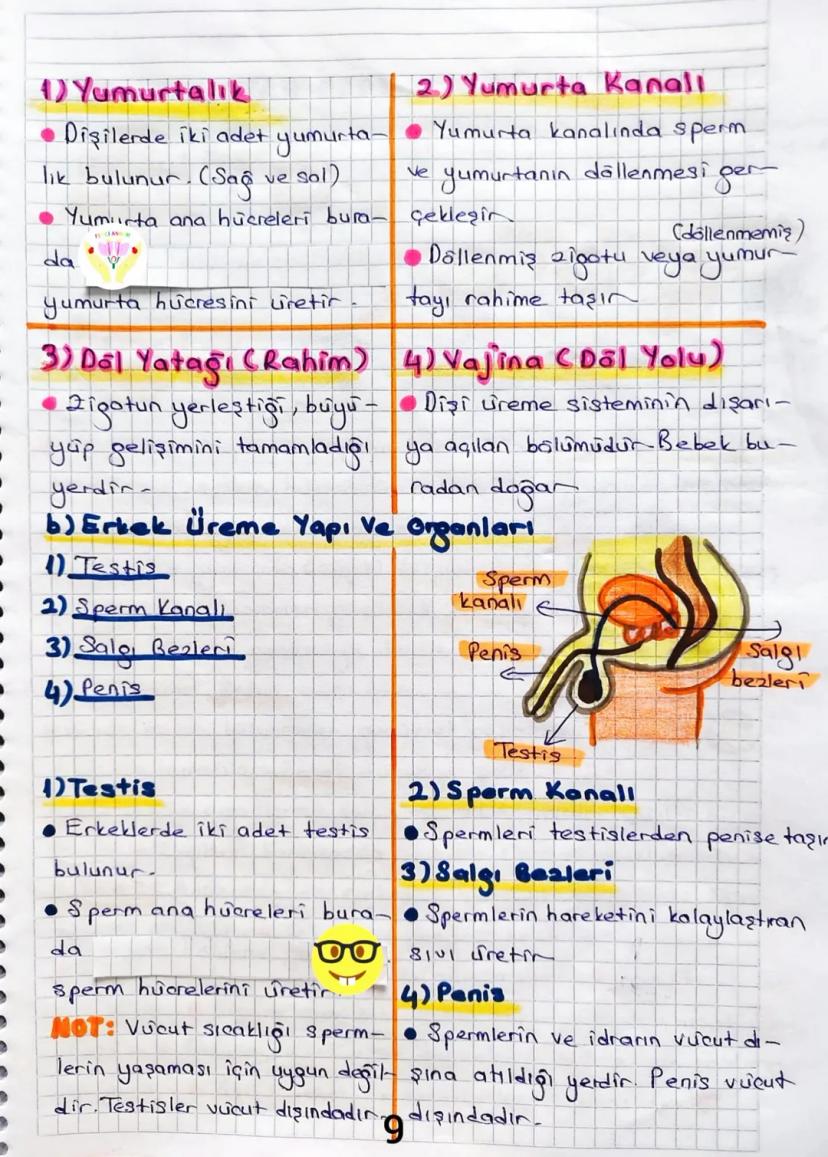 1) Yumurtalık
• Dişilerde iki adet yumurta-
lık bulunur. (Sağ ve sol)
• Yumurta ana hücreleri bura-
da
yumurta hücresini üretir.
2) Yumurta Kanalı
• Yumurta kanalında sperm
ve yumurtanın döllenmesi ger-
çekleşir
(döllenmemiş)
• Döllenmiş zigotu veya yumur-
tayı rahime taşır
3) Döl Yatağı (Rahim)
• Zigotun yerleştiği, büyü-
yüp gelişimini tamamladığı
yerdir.
4) Vajina (Döl Yolu)
• Dişi üreme sisteminin dışarı-
ya açılan bölümüdür. Bebek bu-
radan doğar
b) Erkek Üreme Yapı Ve Organları
1) Testis
2) Sperm Kanalı
3) Salgı Bezleri
4) Penis
Sperm
kanalı
Penis
Salgı
bezleri
Testis
1) Testis
• Erkeklerde iki adet testis
bulunur.
• Sperm ana hücreleri bura-
da
sperm hücrelerini üretir.
NOT: Vücut sıcaklığı sperm-
lerin yaşaması için uygun değil-
dir. Testisler vücut dışındadır.
2) Sperm Kanalı
• Spermleri testislerden penise taşır
3) Salgı Bezleri
• Spermlerin hareketini kolaylaştıran
sıvı üretir
4) Penis
• Spermlerin ve idrarın vücut dı-
şına atıldığı yerdir. Penis vücut
dışındadır.
9